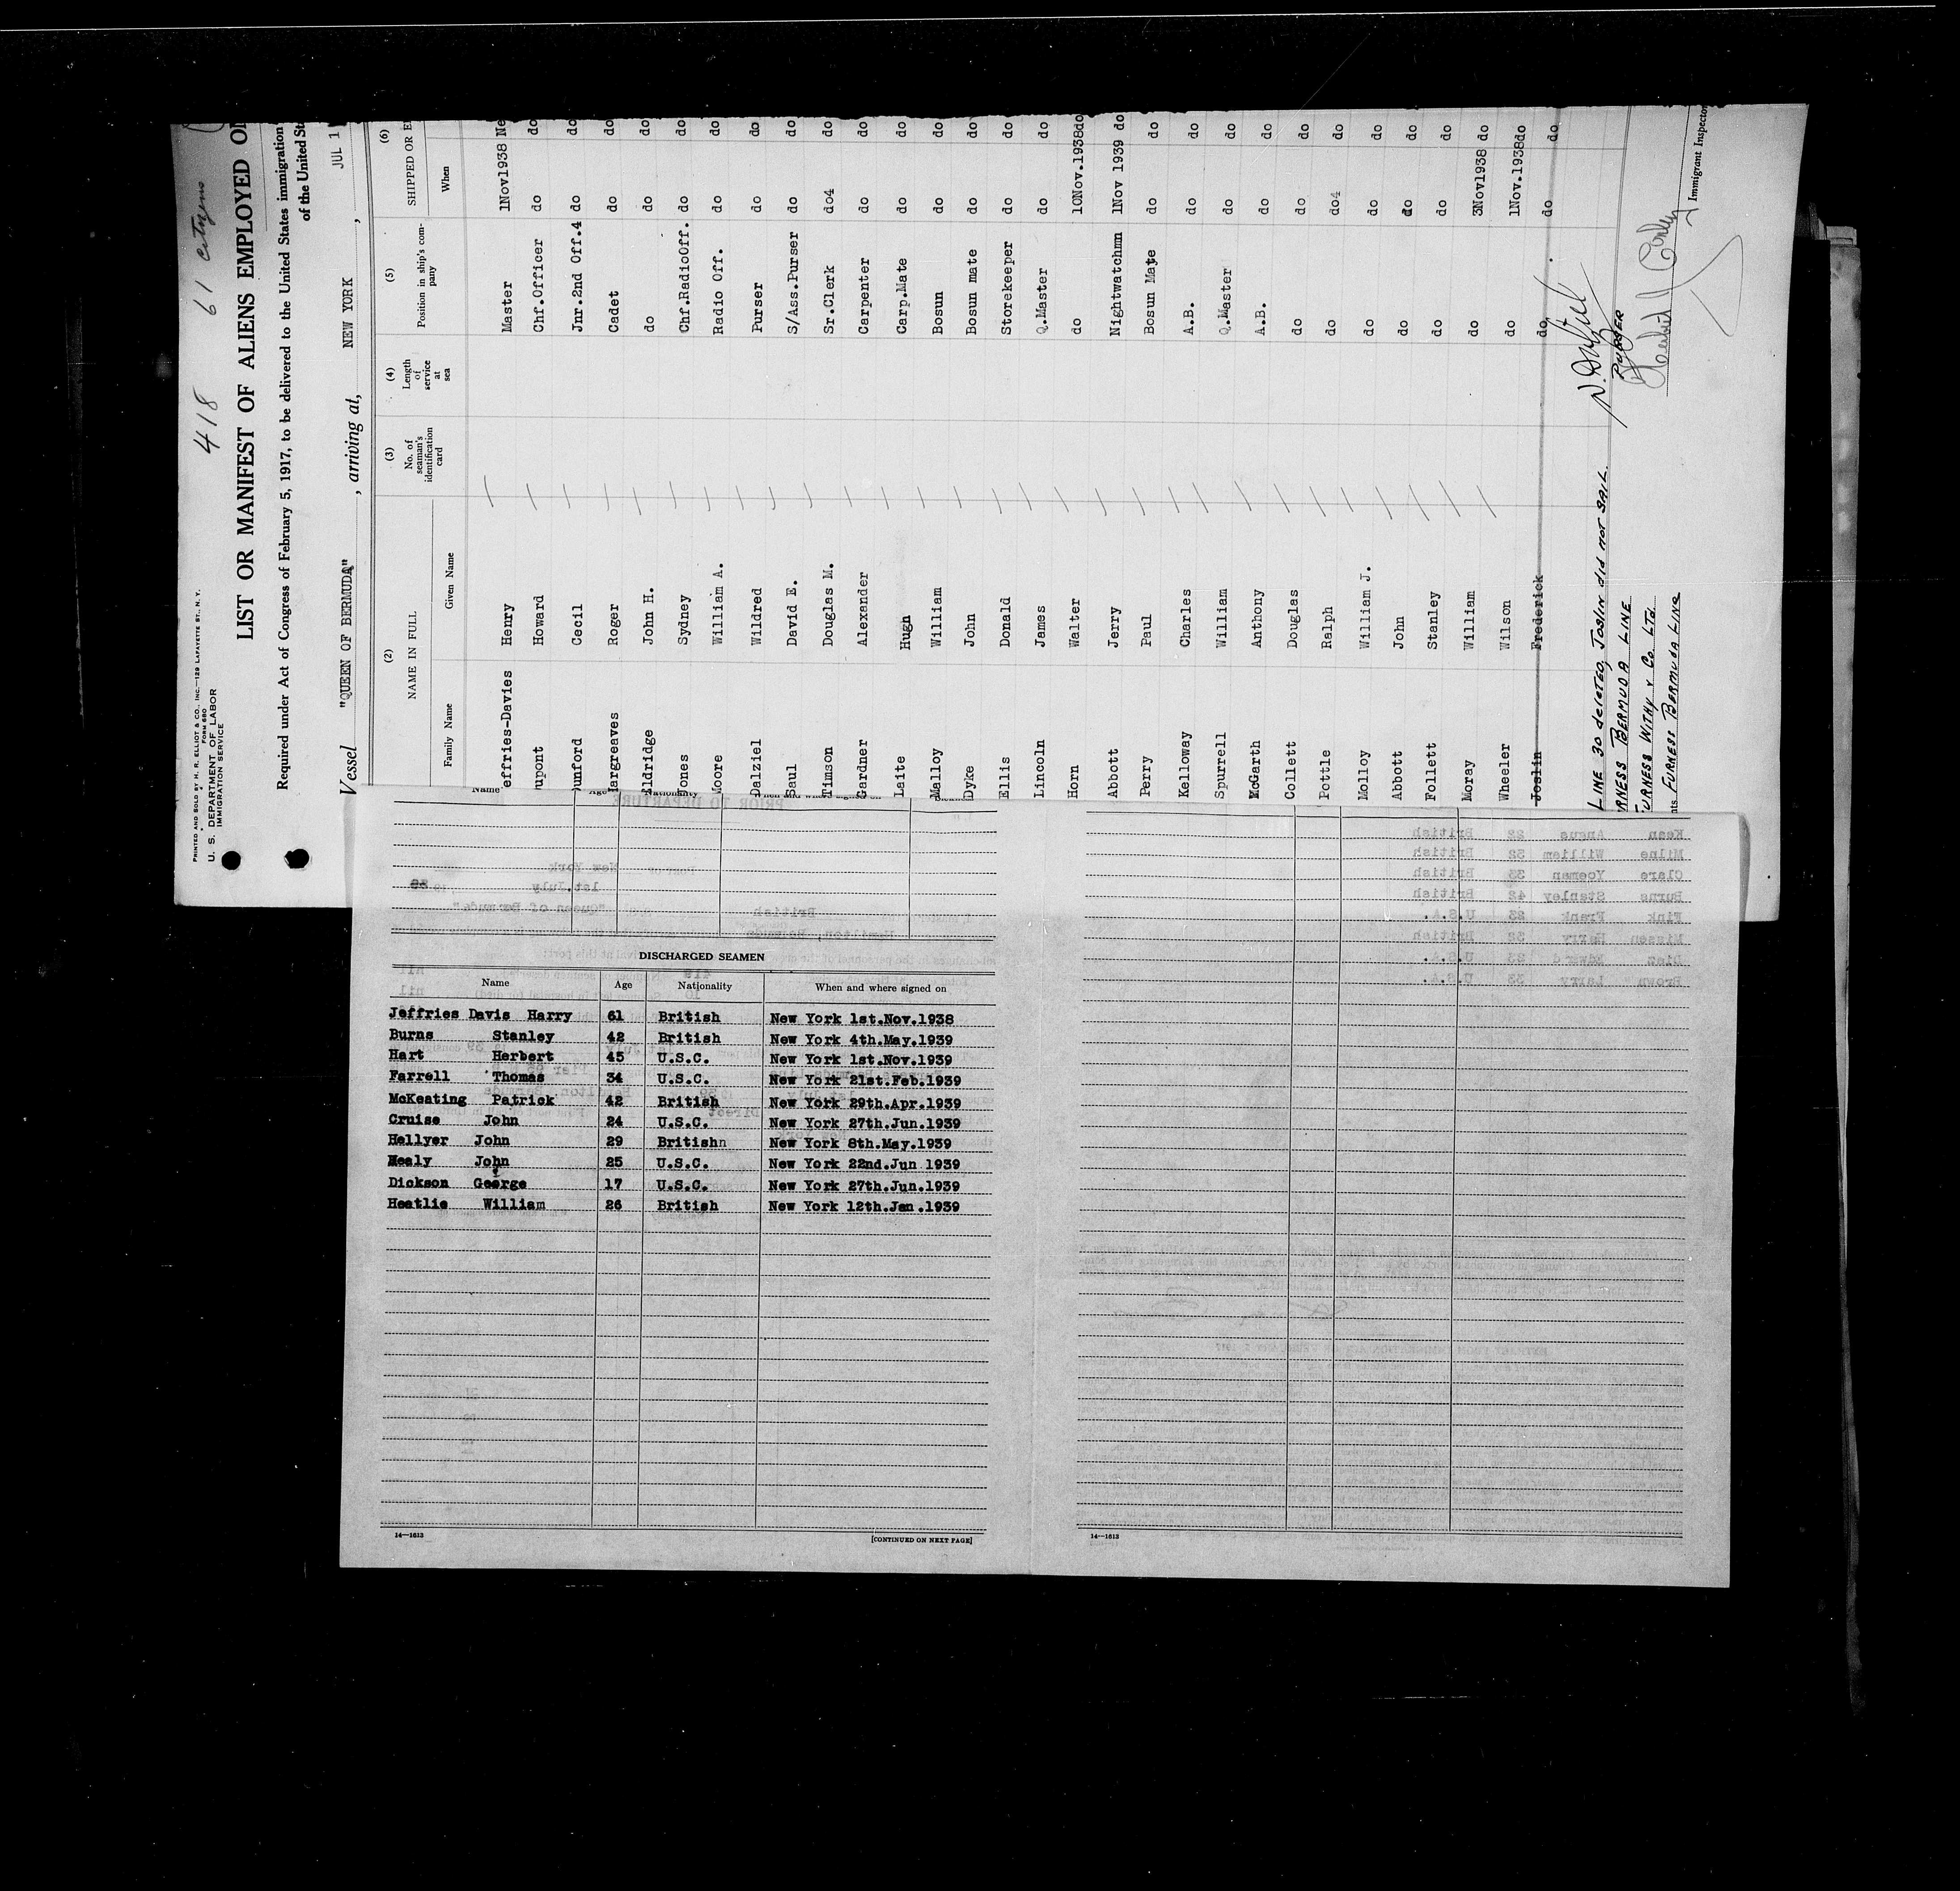 418 61 citizens
PRINTED AND SOLD BY H. R. ELLIOT & CO., INC.—129 LAFAYETTE ST., N. Y.
FORM 680
U. S. DEPARTMENT OF LABOR
IMMIGRATION SERVICE
LIST OR MANIFEST OF ALIENS EMPLOYED O
Required under Act of Congress of February 5, 1917, to be delivered to the United States immigration
of the United St
Vessel "QUEEN OF BERMUDA" , arriving at, NEW YORK , JUL 1
(2) (3) (4) (5) (6)
NAME IN FULL No. of seaman's identification card Length of service at sea Position in ship's company SHIPPED OR E
Family Name Given Name When
effries-Davies Henry Master 1Nov1938 Ne
upont Howard Chf.Officer do do
unford Cecil Jnr.2nd Off.4 do do
argreaves Roger Cadet do do
ldridge John H. do do do
Jones Sydney Chf.RadioOff. do do
Moore William A. Radio Off. do do
Dalziel Wildred Purser do do
Saul David E. S/Ass.Purser do do
Timson Douglas M. Sr.Clerk do4 do
Gardner Alexander Carpenter do do
Laite Hugh Carp.Mate do do
Malloy William Bosun do do
Dyke John Bosun mate do do
Ellis Donald Storekeeper do do
Lincoln James Q.Master do do
Horn Walter do 10Nov.1938do
Abbott Jerry Nightwatchmn 1Nov 1939 do
Perry Paul Bosun Mate do do
Kelloway Charles A.B. do do
Spurrell William Q.Master do do
McGarth Anthony A.B. do do
Collett Douglas do do do
Pottle Ralph do do4 do
Molloy William J. do do do
Abbott John do do do
Follett Stanley do do do
Moray William do 3Nov1938 do
Wheeler Wilson do 1Nov.1938do
Joslin Frederick do do do
LINE 30 deleted, Joslin did not sail.
PURSER
RNESS BERMUDA LINE
URNESS WITHY & Co. LTD.
nts FURNESS BERMUDA LINE
Immigrant Inspector
DISCHARGED SEAMEN
Name Age Nationality When and where signed on
Jeffries Davis Harry 61 British New York 1st.Nov.1938
Burns Stanley 42 British New York 4th.May.1939
Hart Herbert 45 U.S.C. New York 1st.Nov.1939
Farrell Thomas 34 U.S.C. New York 21st.Feb.1939
McKeating Patrick 42 British New York 29th.Apr.1939
Cruise John 24 U.S.C. New York 27th.Jun.1939
Hellyer John 29 Britishn New York 8th.May.1939
Healy John 25 U.S.C. New York 22nd.Jun 1939
Dickson George 17 U.S.C. New York 27th.Jun.1939
Heatlie William 26 British New York 12th.Jan.1939
14—1613 [CONTINUED ON NEXT PAGE]
14—1613
Kean Angus 22 British
Milne William 52 British
Clare Yoeman 33 British
Burns Stanley 42 British
Fink Frank 23 U.S.A.
Nissen Harry 38 British
Diaz Edward 23 U.S.A.
Brown Larry 33 U.S.A.